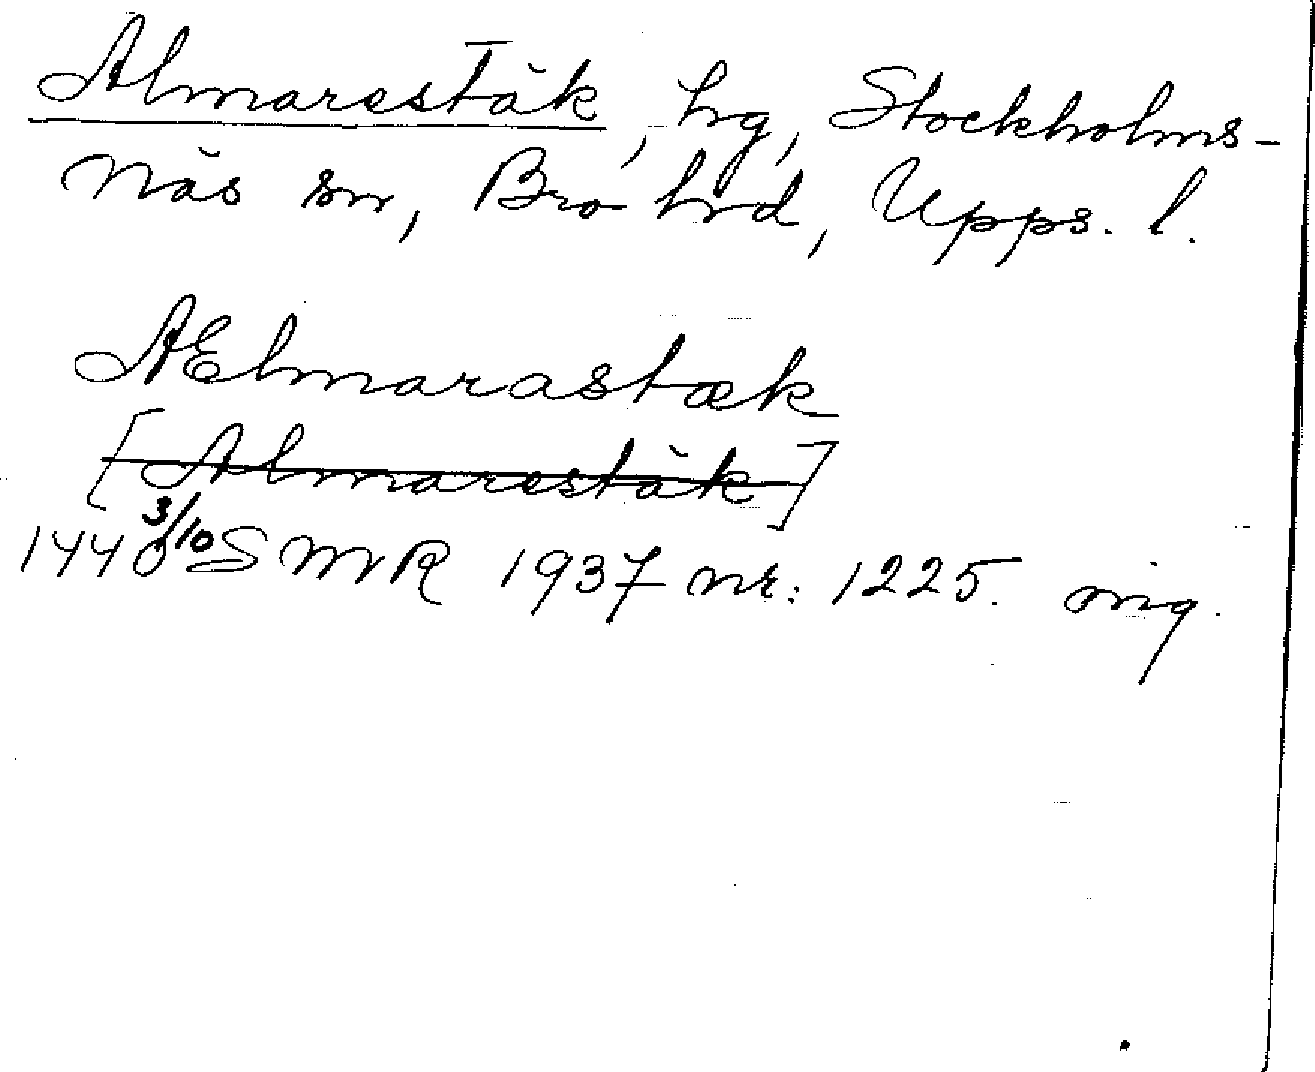 Almarestäk, hg, Stockholms-
Näs sn, Bro hrd, Upps. l.
AElmarastæk
[Almarestäk]
1440 3/10 SMR 1937 nr: 1225. orig.